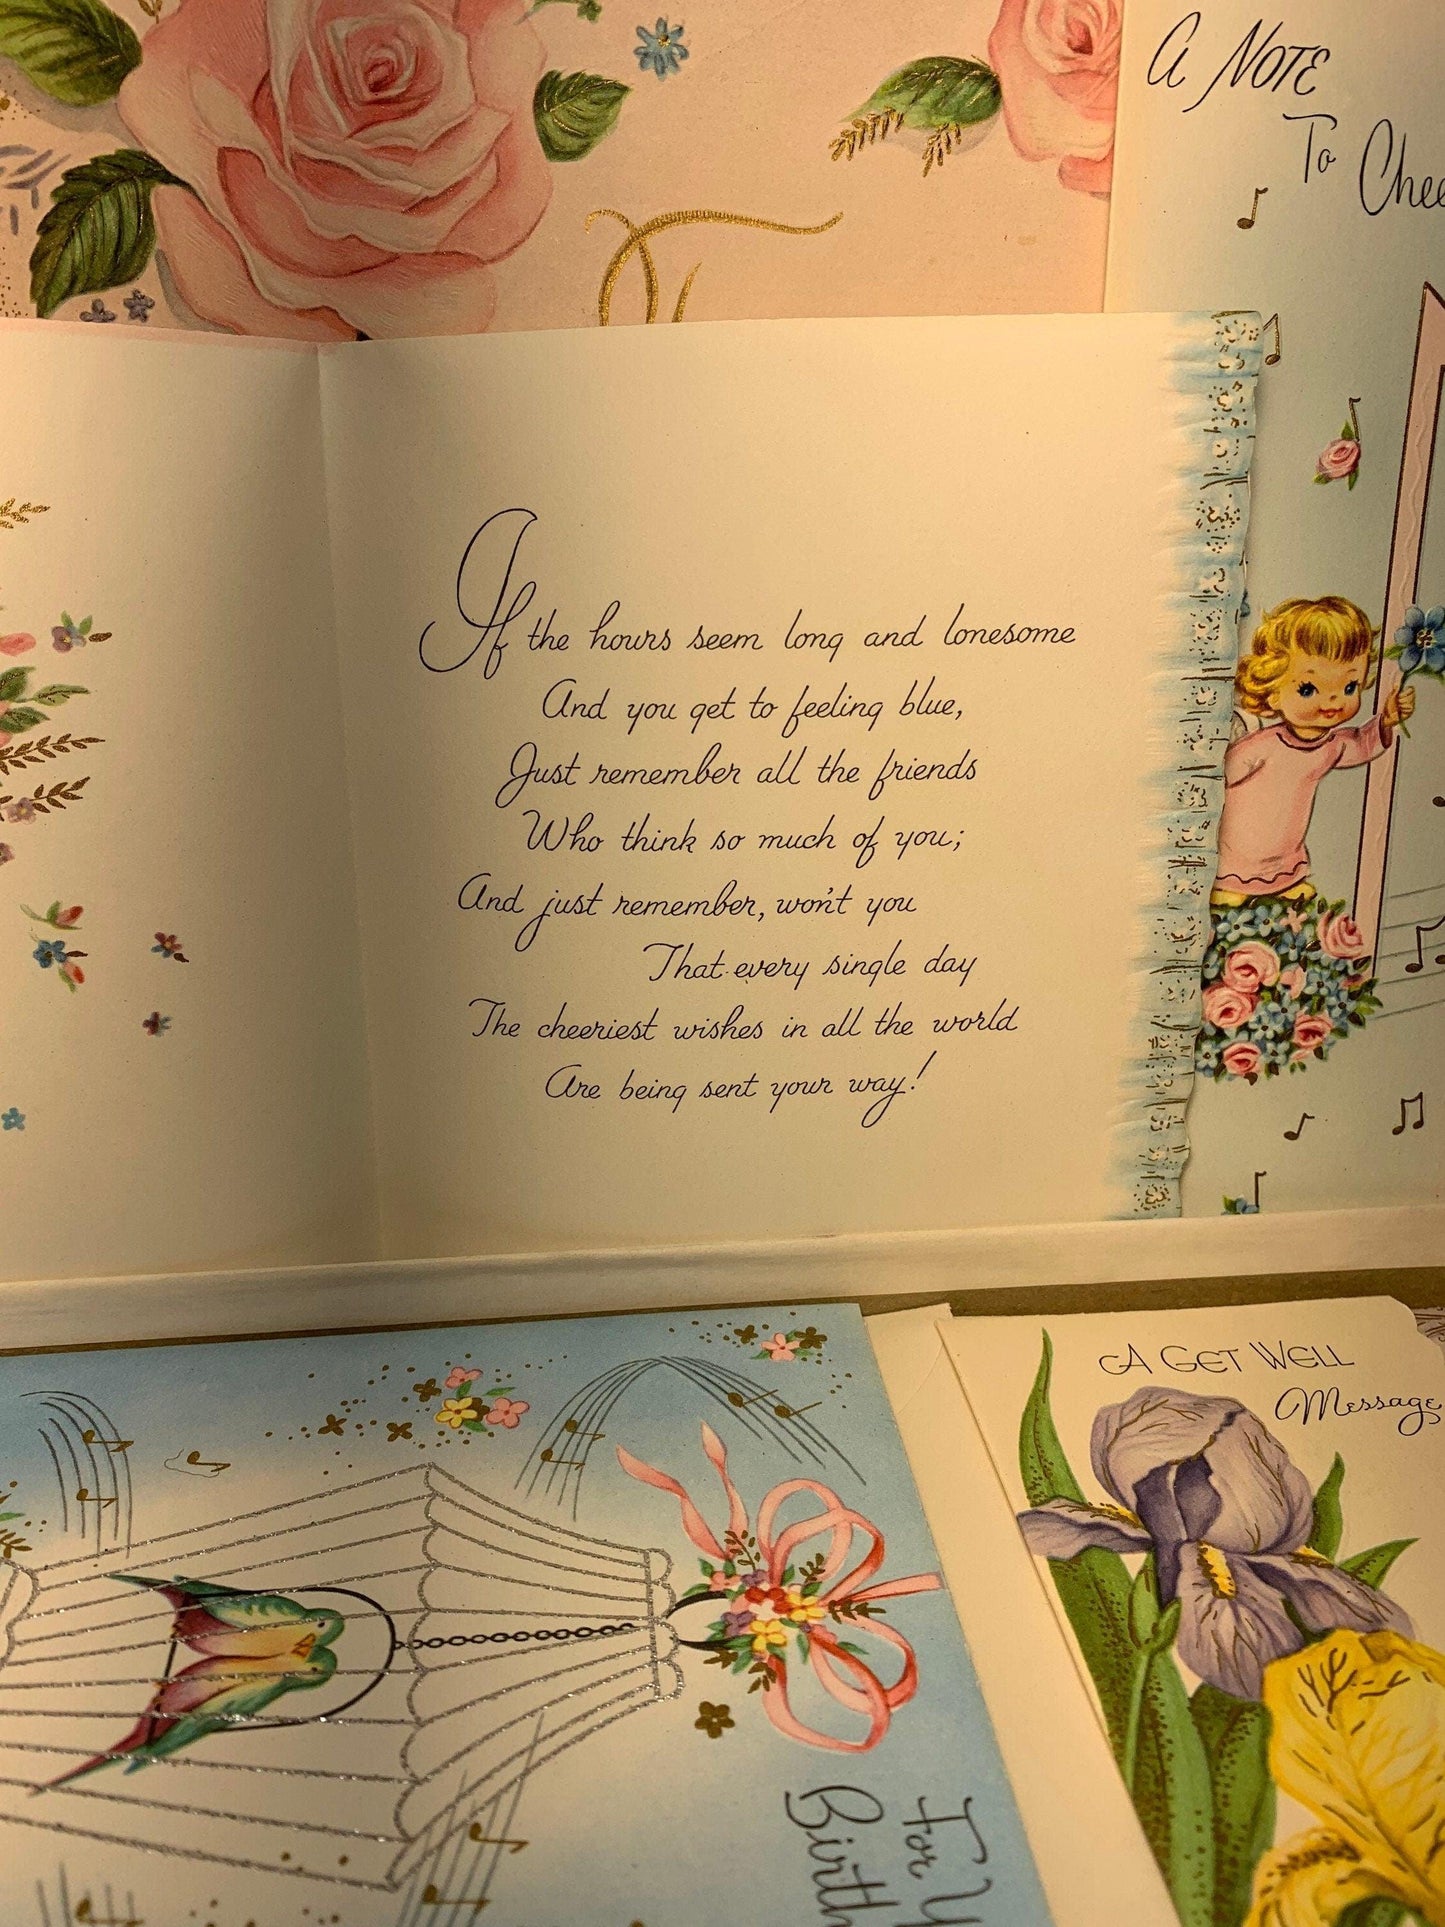 A NOTE
To
If the hours seem long and lonesome
And you get to feeling blue,
Just remember all the friends
Who think so much of you;
And just remember, won't you
That every single day
The cheeriest wishes in all the world
Are being sent your way!
A GET WELL
Message
For